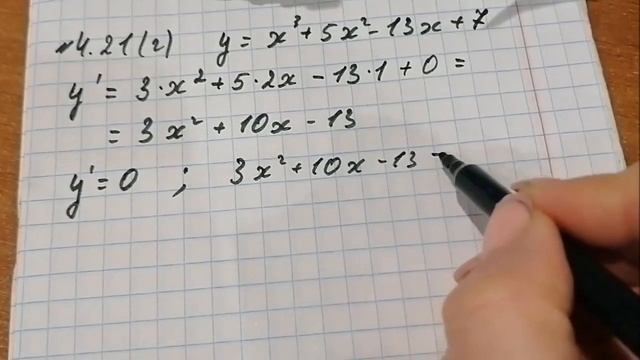 №4.21(г) y = x³ + 5x² - 13x + 7
y' = 3·x² + 5·2x - 13·1 + 0 =
= 3x² + 10x - 13
y' = 0 ; 3x² + 10x - 13